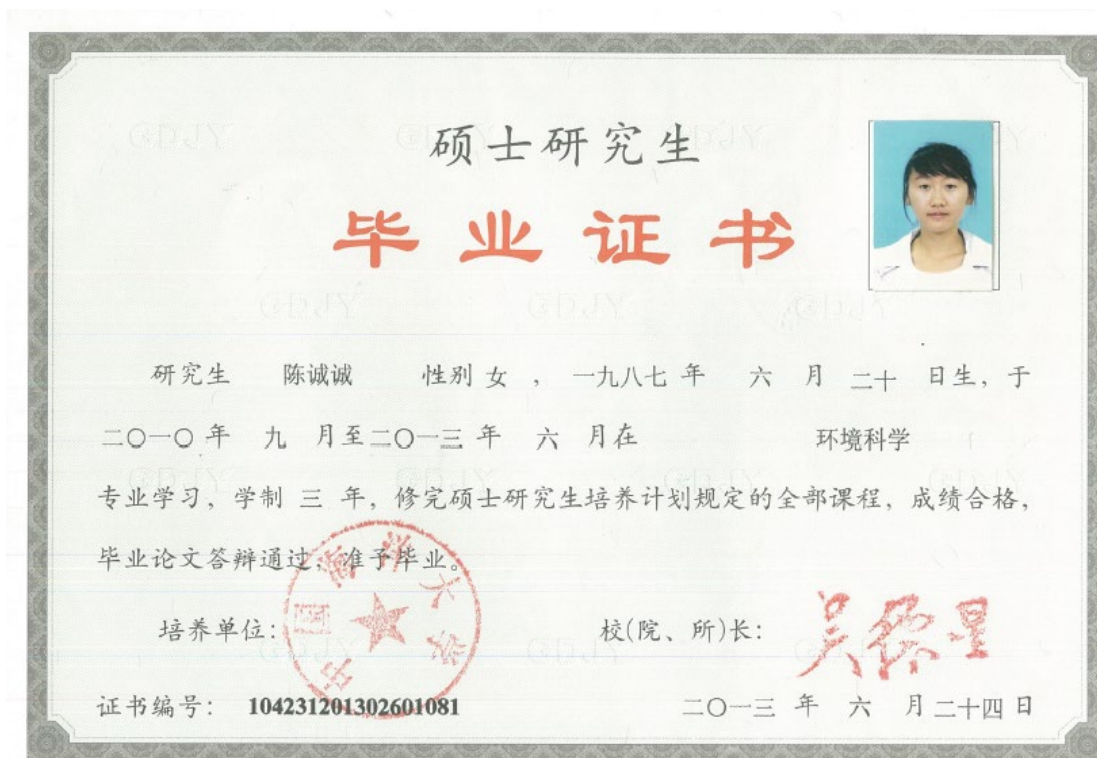 硕士研究生
毕业证书
研究生 陈诚诚 性别 女 , 一九八七 年 六 月 二十 日生, 于
二〇一〇 年 九 月至 二〇一三 年 六 月在 环境科学
专业学习, 学制 三 年, 修完硕士研究生培养计划规定的全部课程, 成绩合格,
毕业论文答辩通过, 准予毕业。
中国海洋大学
培养单位:
校(院、所)长: 吴德星
证书编号: 104231201302601081
二〇一三 年 六 月 二十四 日